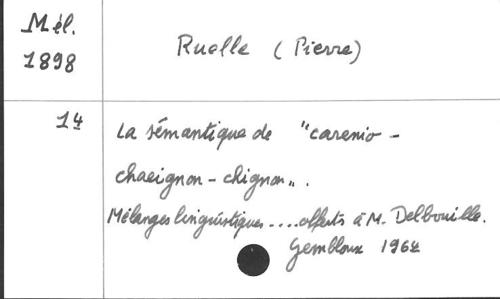 Mél.
1898
Ruelle (Pierre)
14
La sémantique de "carenio -
chaeignon - chignon".
Mélanges linguistiques .... offerts à M. Delbouille.
Gembloux 1964